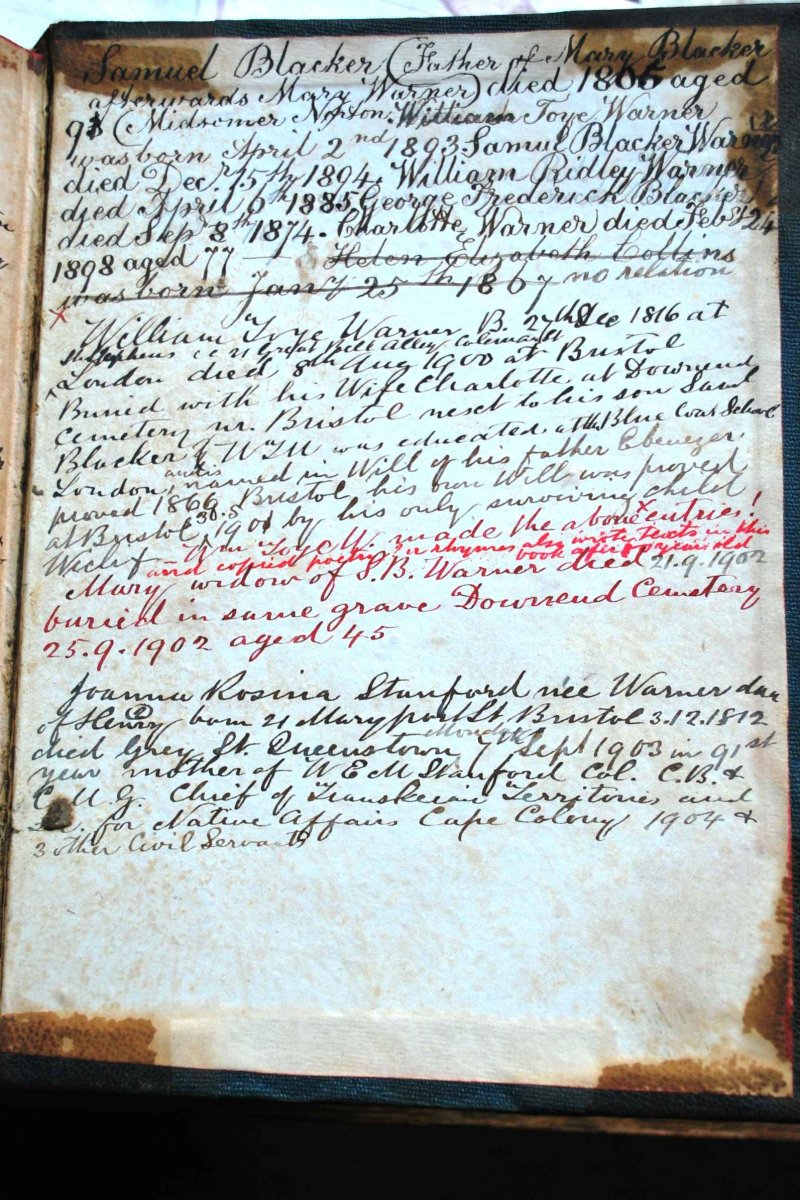 Samuel Blacker (Father of Mary Blacker
afterwards Mary Warner) died 1865 aged
91 (Midsomer Norton. William Toye Warner
was born April 2nd 1893 Samuel Blacker Warner
died Dec.r 15th 1894. William Ridley Warner
died April 6th 1885 George Frederick Blacker
died Sep 8th 1874. Charlotte Warner died Feb 24
1898 aged 77 — Helen Elizabeth Collins
was born Jany 25th 1867 no relation
x
William Toye Warner B. 27th Dec 1816 at
St Stephens 21 Great Bell Alley Coleman St
London died 8th Aug 1900 at Bristol
Buried with his Wife Charlotte at Downend
Cemetery nr. Bristol next to his son Saml
Blacker W. WTW was educated at the Blue Coat School
London, and is named in Will of his father Ebenezer
proved 1866 Bristol, his own Will was proved
at Bristol 30.5.1901 by his only surviving child
Wm Toye W. made the above entries!
and copied poetry in rhymes also wrote texts in this
book after years old
Mary widow of S. B. Warner died 21.9.1902
buried in same grave Downend Cemetery
25.9.1902 aged 45
Joanna Rosina Stanford née Warner dau
of Henry born 21 Maryport St, Bristol 3.12.1812
died Grey St. Queenstown Monday 7th Sept 1903 in 91st
year mother of W E M Stanford Col. C.B. &
C.M.G. Chief of Transkeian Territories and
for Native Affairs Cape Colony 1904 &
3 other Civil Servants